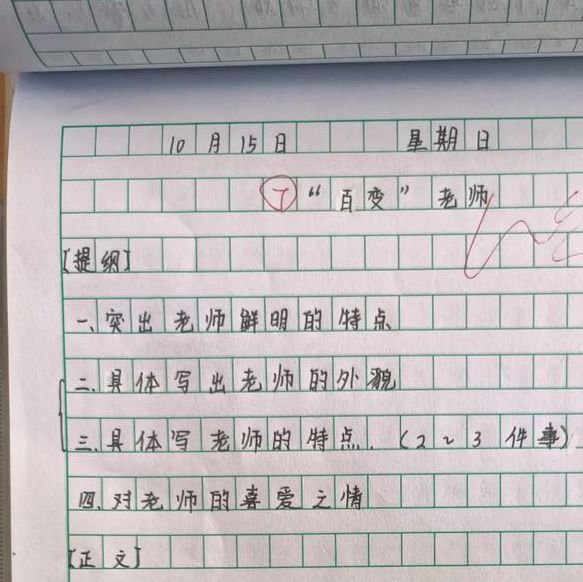 10月15日 星期日
“百变”老师
[提纲]
一、突出老师鲜明的特点
二、具体写出老师的外貌
三、具体写老师的特点.(2~3件事)
四、对老师的喜爱之情
[正文]